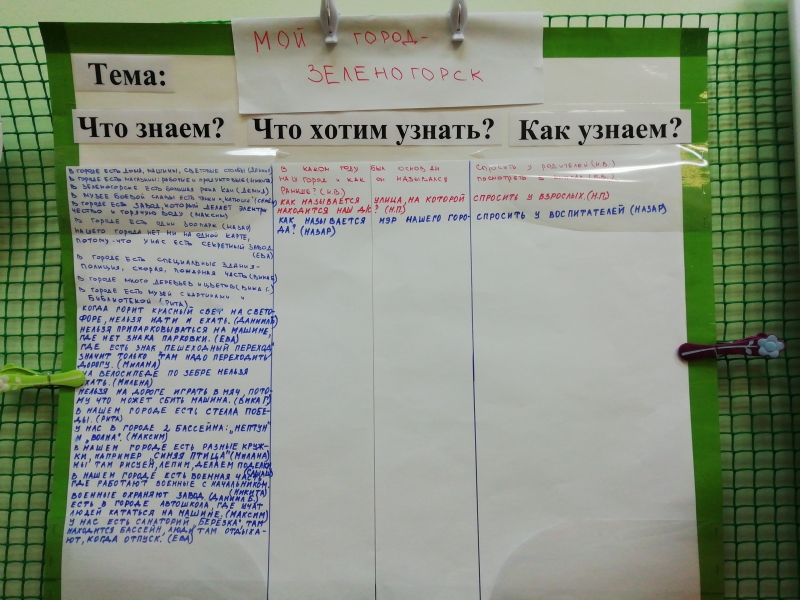 МОЙ ГОРОД-
ЗЕЛЕНОГОРСК
Тема:
Что знаем?
Что хотим узнать?
Как узнаем?
В ГОРОДЕ ЕСТЬ ДОМА, МАШИНЫ, СВЕТОВЫЕ
В ГОРОДЕ ЕСТЬ МАГАЗИНЫ: РАБОЧИЕ И ПРОДУКТОВЫЕ
В ЗЕЛЕНОГОРСКЕ ЕСТЬ БОЛЬШАЯ РЕКА КАН (ДЕНИЗ)
В МУЗЕЕ БОЕВОЙ СЛАВЫ ЕСТЬ ТАНКИ „КАТЮША"
В ГОРОДЕ ЕСТЬ ЗАВОД, КОТОРЫЙ ДЕЛАЕТ ЭЛЕКТРИ
ЧЕСТВО И ГОРЯЧУЮ ВОДУ (МАКСИМ)
В ГОРОДЕ ЕСТЬ ОДИН ЗООПАРК (НАЗАР)
НАШЕГО ГОРОДА НЕТ НИ НА ОДНОЙ КАРТЕ,
ПОТОМУ-ЧТО У НАС ЕСТЬ СЕКРЕТНЫЙ ЗАВОД
(ЕВА)
В ГОРОДЕ ЕСТЬ СПЕЦИАЛЬНЫЕ ЗДАНИЯ-
ПОЛИЦИЯ, СКОРАЯ, ПОЖАРНАЯ ЧАСТЬ
В ГОРОДЕ МНОГО ДЕРЕВЬЕВ И ЦВЕТОВ (ВИКА Г.)
В ГОРОДЕ ЕСТЬ МУЗЕЙ С КАРТИНАМИ И
БИБЛИОТЕКОЙ (РИТА)
КОГДА ГОРИТ КРАСНЫЙ СВЕТ НА СВЕТО-
ФОРЕ, НЕЛЬЗЯ ИДТИ И ЕХАТЬ. (ДАНИИЛ Б)
НЕЛЬЗЯ ПРИПАРКОВЫВАТЬСЯ НА МАШИНЕ,
ГДЕ НЕТ ЗНАКА ПАРКОВКИ. (ЕВА)
ГДЕ ЕСТЬ ЗНАК „ПЕШЕХОДНЫЙ ПЕРЕХОД"
ЗНАЧИТ ТОЛЬКО ТАМ НАДО ПЕРЕХОДИТЬ
ДОРОГУ. (МИЛАНА)
НА ВЕЛОСИПЕДЕ ПО ЗЕБРЕ НЕЛЬЗЯ
ЕХАТЬ. (МИЛЕНА)
НЕЛЬЗЯ НА ДОРОГЕ ИГРАТЬ В МЯЧ, ПОТО-
МУ ЧТО МОЖЕТ СБИТЬ МАШИНА. (ВИКА Г)
В НАШЕМ ГОРОДЕ ЕСТЬ СТЕЛЛА ПОБЕ-
ДЫ. (РИТА)
У НАС В ГОРОДЕ 2 БАССЕЙНА: „НЕПТУН"
И „ВОЛНА". (МАКСИМ)
В НАШЕМ ГОРОДЕ ЕСТЬ РАЗНЫЕ КРУЖ-
КИ, НАПРИМЕР „СИНЯЯ ПТИЦА" (МИЛАНА)
МЫ ТАМ РИСУЕМ, ЛЕПИМ, ДЕЛАЕМ ПОДЕЛКИ
В НАШЕМ ГОРОДЕ ЕСТЬ ВОЕННАЯ ЧАСТЬ,
ГДЕ РАБОТАЮТ ВОЕННЫЕ С НАЧАЛЬНИКОМ.
(НИКИТА)
ВОЕННЫЕ ОХРАНЯЮТ ЗАВОД. (ДАНИИЛ Б.)
ЕСТЬ В ГОРОДЕ АВТОШКОЛА, ГДЕ УЧАТ
ЛЮДЕЙ КАТАТЬСЯ НА МАШИНЕ. (МАКСИМ)
У НАС ЕСТЬ САНАТОРИЙ „БЕРЕЗКА", ТАМ
НАХОДИТСЯ БАССЕЙН, ЛЮДИ ТАМ ОТДЫХА-
ЮТ, КОГДА ОТПУСК. (ЕВА)
В КАКОМ ГОДУ БЫЛ ОСНОВАН
НАШ ГОРОД И КАК ОН НАЗЫВАЛСЯ
РАНЬШЕ? (Н.В.)
КАК НАЗЫВАЕТСЯ УЛИЦА, НА КОТОРОЙ
НАХОДИТСЯ НАШ Д/С? (Н.П)
КАК НАЗЫВАЕТСЯ МЭР НАШЕГО ГОРО-
ДА? (НАЗАР)
СПРОСИТЬ У РОДИТЕЛЕЙ (Н.В.)
ПОСМОТРЕТЬ В (Н.В.)
СПРОСИТЬ У ВЗРОСЛЫХ. (Н.П)
СПРОСИТЬ У ВОСПИТАТЕЛЕЙ (НАЗАР)